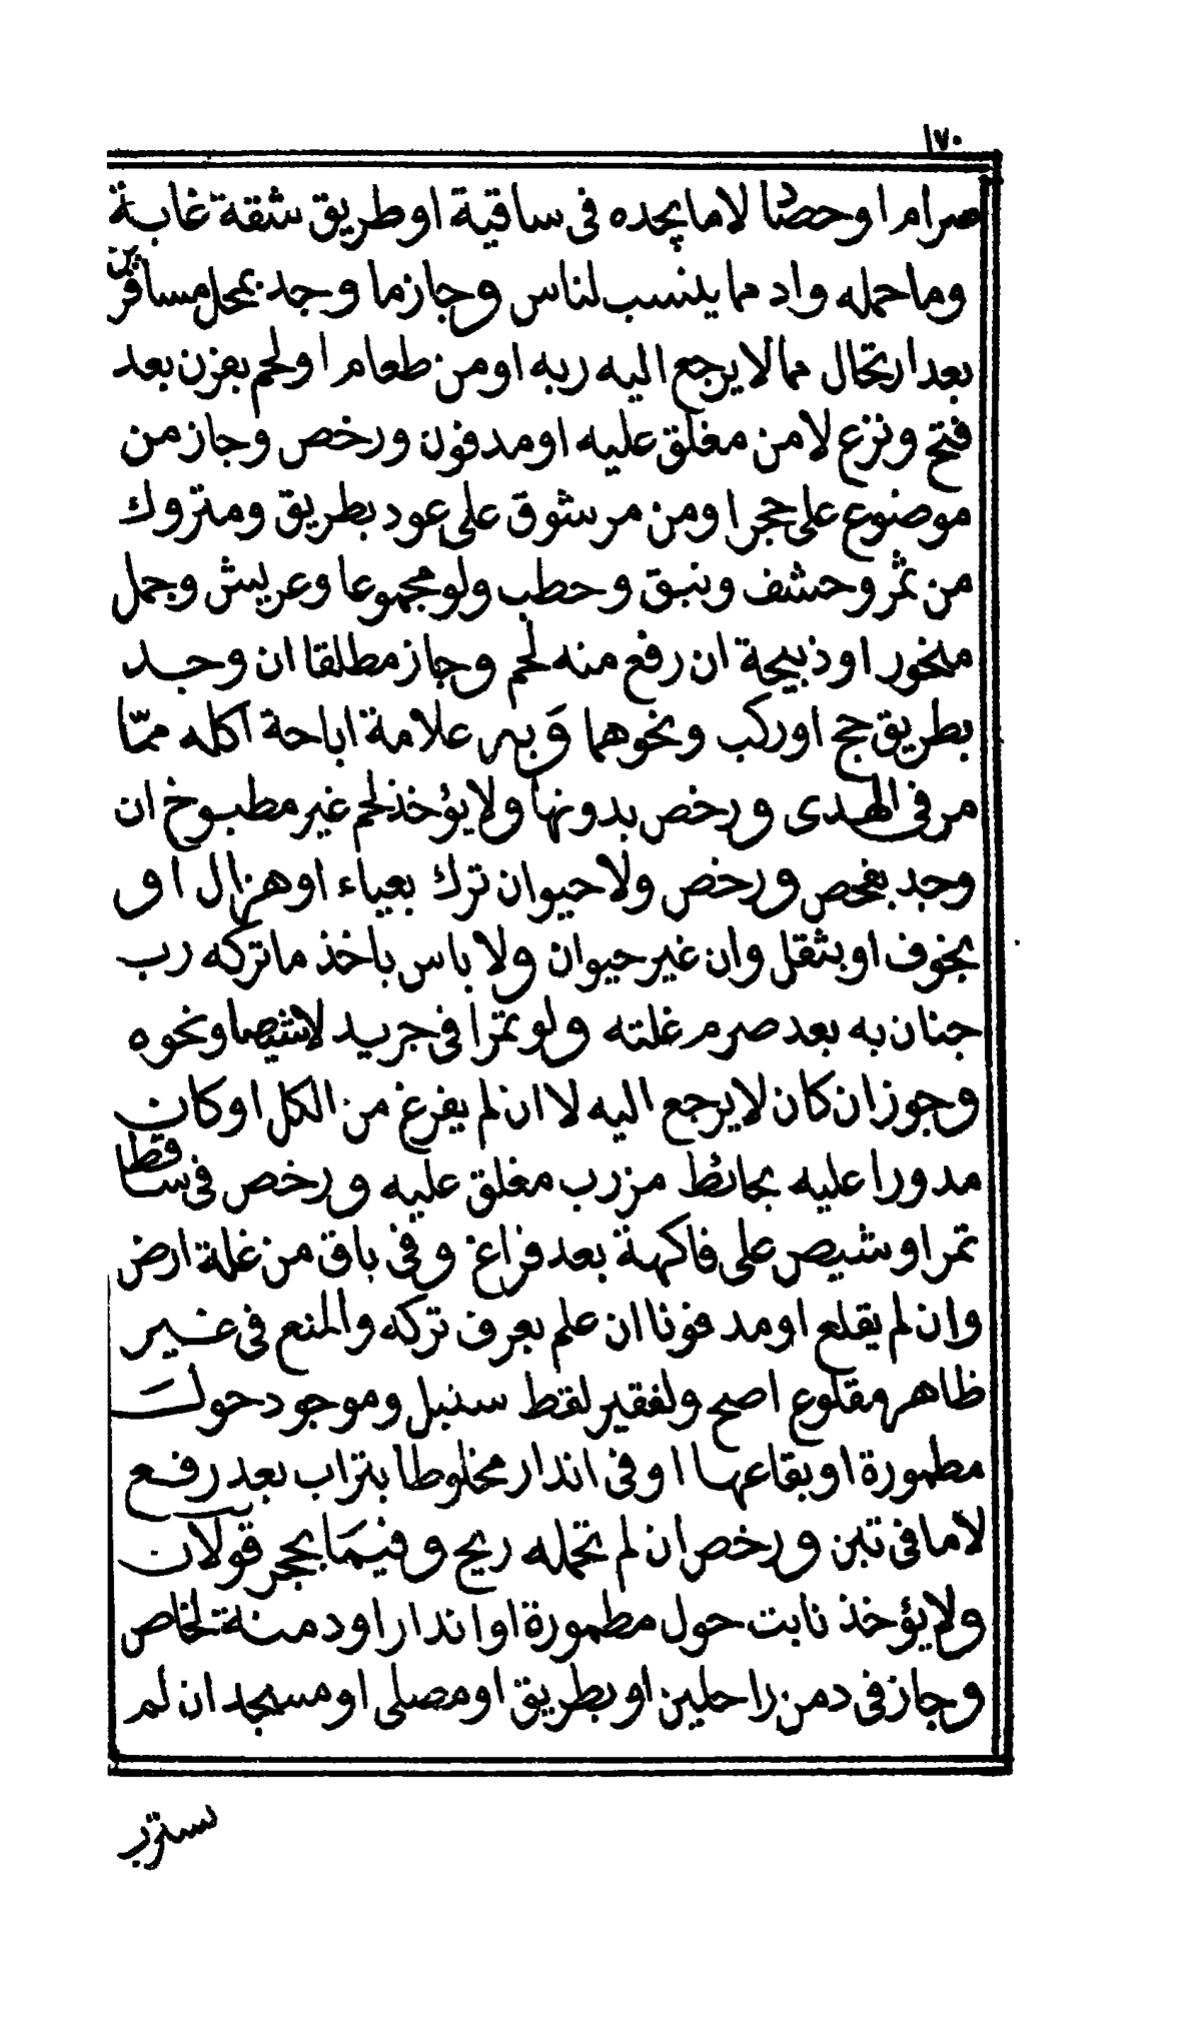 ١٧٠
صرام او حصاد لا ما يجده في ساقية او طريق شقة غابة
وما حمله واد مما ينسب لناس وجاز ما وجد بمحل مسافرين
بعد ارتحال مما لا يرجع اليه ربه او من طعام او لحم بفزن بعد
فتح ونزع لا من مغلق عليه او مدفون ورخص وجاز من
موضوع على حجر او من مرشوق على عود بطريق ومتروك
من تمر وحشف ونبق وحطب ولو مجموعا وعريش وجمل
منحور او ذبيحة ان رفع منه لحم وجاز مطلقا ان وجد
بطريق حج او ركب ونحوهما وَبه علامة اباحة اكله ممّا
مر في الهدى ورخص بدونها ولا يؤخذ لحم غير مطبوخ ان
وجد بفحص ورخص ولا حيوان ترك بعياء او هزال او
بخوف او بثقل وان غير حيوان ولا باس باخذ ما تركه رب
جنان به بعد صرم غلته ولو تمرا في جريد لا شيصا ونحوه
وجوز ان كان لا يرجع اليه لا ان لم يفرغ من الكل او كان
مدورا عليه بحائط مزرب مغلق عليه ورخص في ساقط
تمر او شيص على فاكهة بعد فراغ وفي باق من غلة ارض
وان لم يقلع او مدفونا ان علم بعرف تركه والمنع في غير
ظاهر ومقلوع اصح ولفقير لقط سنبل وموجود حولَ
مطمورة او بقاعها او في اندار مخلوطا بتراب بعد رفع
لا ما في تبن ورخص ان لم تحمله ريح وفيمَا بجحر قولان
ولا يؤخذ نابت حول مطمورة او اندار او دمنة لخاص
وجاز في دمن راحلين او بطريق او مصلى او مسجد ان لم